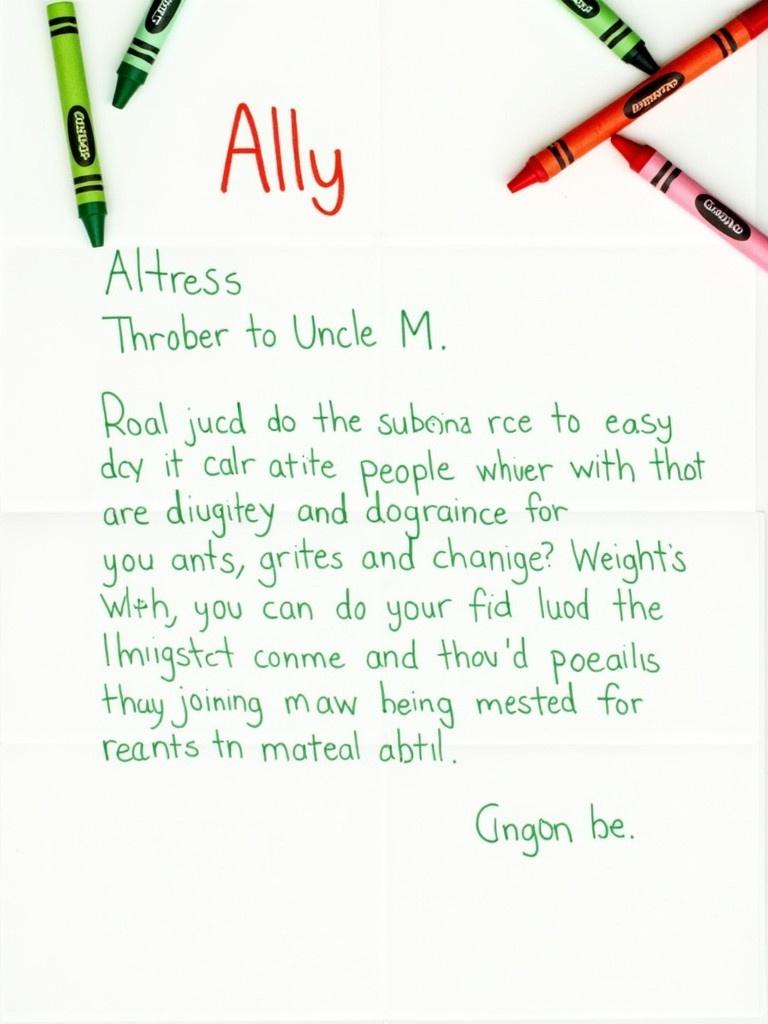 Ally
Altress
Throber to Uncle M.
Roal jucd do the subona rce to easy
dcy it calr atite people whuer with thot
are diugitey and dograince for
you ants, grites and chanige? Weight's
you can do your fid luod the
conme and thou'd poeailis
thuy joining maw being mested for
reants tn mateal abtil.
Gngon be.